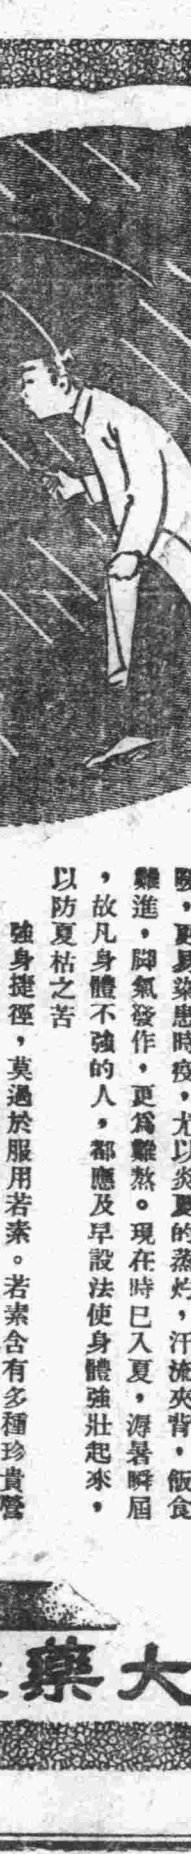 驗，更易染患時疫，尤以炎夏的蒸灼，汗流夾背，飯食
難進，脚氣發作，更爲難熬。現在時已入夏，溽暑瞬屆
，故凡身體不強的人，都應及早設法使身體強壯起來，
以防夏枯之苦
強身捷徑，莫過於服用若素。若素含有多種珍貴營
大藥